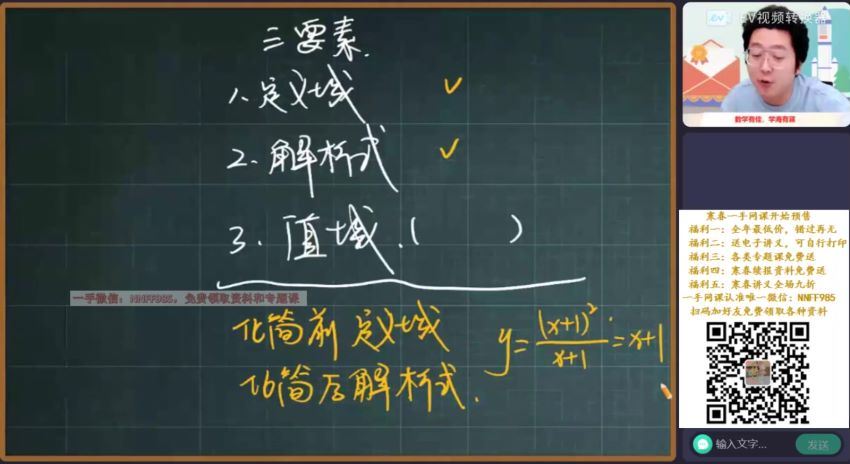 三要素.
1.定义域 ✓
2.解析式 ✓
3.值域.( )
化简前定义域
化简后解析式.
y=(x+1)²/x+1=x+1
一手微信：NNFF985，免费领取资料和专题课
EV视频转换器
数学有佳，学海有舔
寒春一手网课开始预售
福利一：全年最低价，错过再无
福利二：送电子讲义，可自行打印
福利三：各类专题课免费送
福利四：寒春续报资料免费送
福利五：寒春讲义全场九折
一手网课认准唯一微信：NNFF985
扫码加好友免费领取各种资料
输入文字...
发送